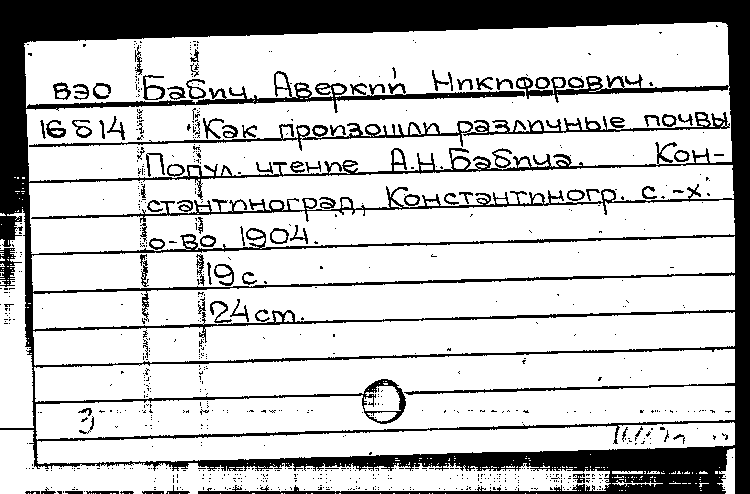 ВЭО Бабич, Аверкий Никифорович.
16814 Как произошли различные почвы
Попул. чтение А.Н.Бабича. Кон-
стантиноград, Константиногр. с.-х.
о-во, 1904.
19 с.
24 ст.
3